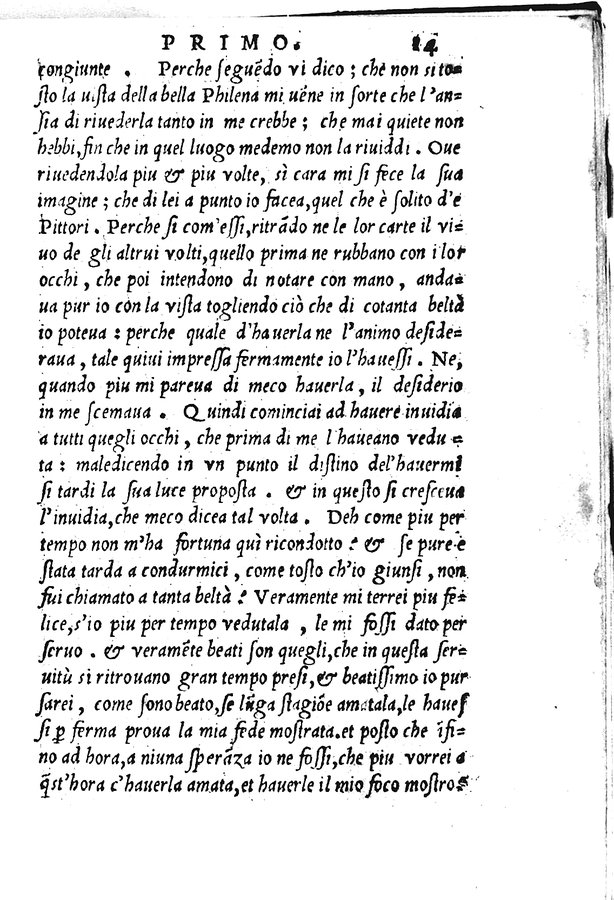 PRIMO. 24
congiunte . Perche seguẽdo vi dico ; che non si to=
sto la uista della bella Philena mi uẽne in sorte che l'an=
sia di riuederla tanto in me crebbe ; che mai quiete non
hebbi, fin che in quel luogo medemo non la riuiddi . Oue
riuedendola piu & piu volte, sì cara mi si fece la sua
imagine ; che di lei a punto io facea, quel che è solito d'e
Pittori . Perche si com'essi, ritrãdo ne le lor carte il vi=
uo de gli altrui volti, quello prima ne rubbano con i lor
occhi , che poi intendono di notare con mano , anda=
ua pur io con la vista togliendo ciò che di cotanta beltà
io poteua : perche quale d'hauerla ne l'animo deside=
raua , tale quiui impressa fermamente io l'hauessi . Ne,
quando piu mi pareua di meco hauerla , il desiderio
in me scemaua . Quindi cominciai ad hauere inuidia
a tutti quegli occhi , che prima di me l haueano vedu =
ta : maledicendo in vn punto il distino del'hauermi
si tardi la sua luce proposta . & in questo si cresceua
l'inuidia, che meco dicea tal volta . Deh come piu per
tempo non m'ha fortuna quì ricondotto ? & se pure è
stata tarda a condurmici , come tosto ch'io giunsi , non
fui chiamato a tanta beltà ? Veramente mi terrei piu fe=
lice, s'io piu per tempo vedutala , le mi fossi dato per
seruo . & veramẽte beati son quegli, che in questa ser=
uitù si ritrouano gran tempo presi, & beatissimo io pur
sarei , come sono beato, se lũga stagiõe amatala, le haues
si ꝑ ferma proua la mia fede mostrata. et posto che ĩfi=
no ad hora, a niuna sperãza io ne fossi, che piu vorrei a
q̃st'hora c'hauerla amata, et hauerle il mio foco mostro=